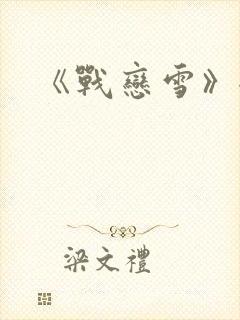 《戰戀雪》
梁文禮